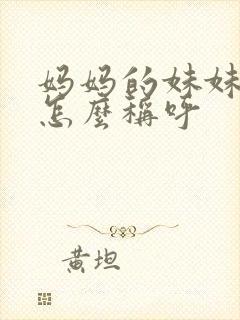 妈妈的妹妹
怎麼稱呼
黃坦